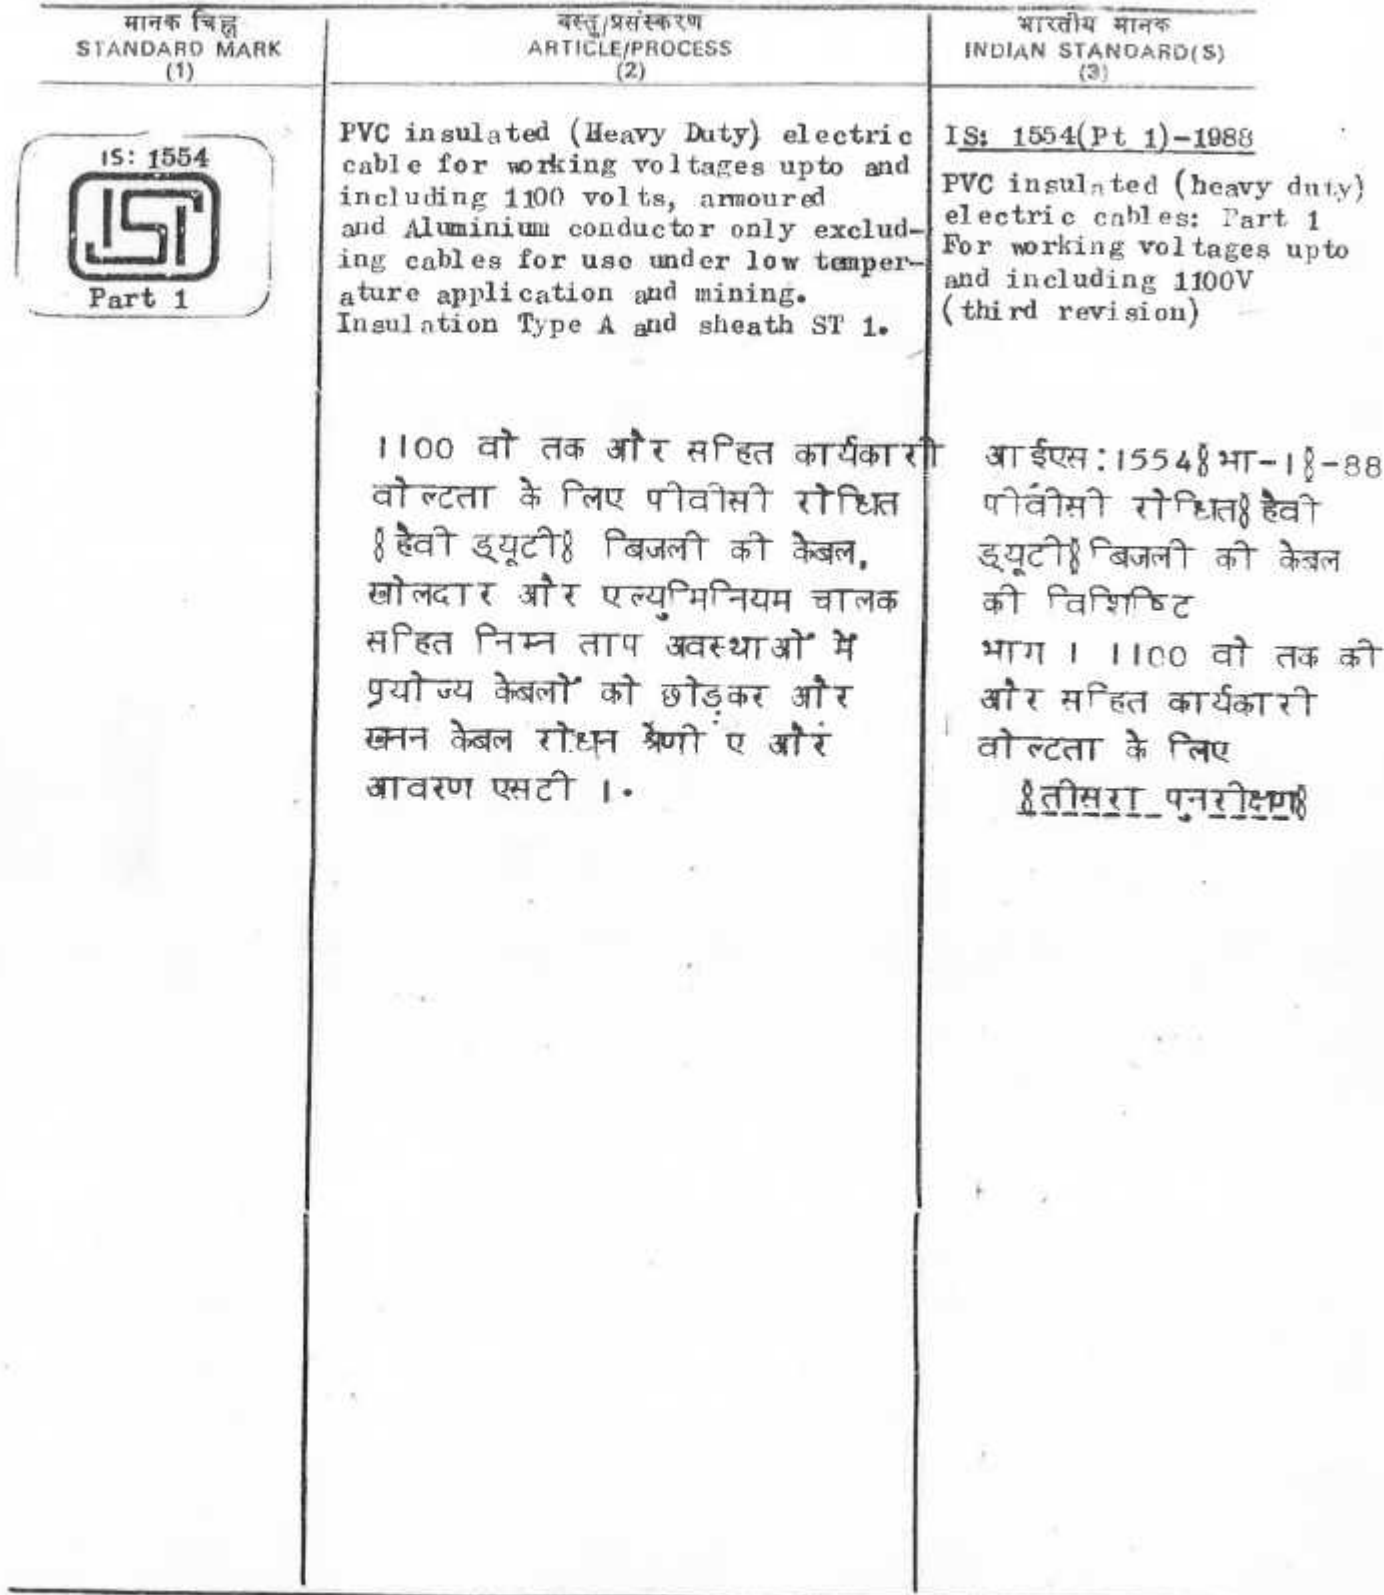 मानक चिह्न
STANDARD MARK
(1)
वस्तु/प्रसंस्करण
ARTICLE/PROCESS
(2)
भारतीय मानक
INDIAN STANDARD(S)
(3)
IS: 1554
ISI
Part 1
PVC insulated (Heavy Duty) electric
cable for working voltages upto and
including 1100 volts, armoured
and Aluminium conductor only exclud-
ing cables for use under low temper-
ature application and mining.
Insulation Type A and sheath ST 1.
IS: 1554(Pt 1)-1988
PVC insulated (heavy duty)
electric cables: Part 1
For working voltages upto
and including 1100V
(third revision)
1100 वो तक और सहित कार्यकारी
वोल्टता के लिए पीवीसी रोधित
§हैवी ड्यूटी§ बिजली की केबल,
खोलदार और एल्युमिनियम चालक
सहित निम्न ताप अवस्थाओं में
प्रयोज्य केबलों को छोड़कर और
खनन केबल रोधन श्रेणी ए और
आवरण एसटी ।.
आईएस:1554§भा-1§-88
पीवीसी रोधित§हैवी
ड्यूटी§बिजली की केबल
की विशिष्टि
भाग । 1100 वो तक की
और सहित कार्यकारी
वोल्टता के लिए
§तीसरा पुनरीक्षण§